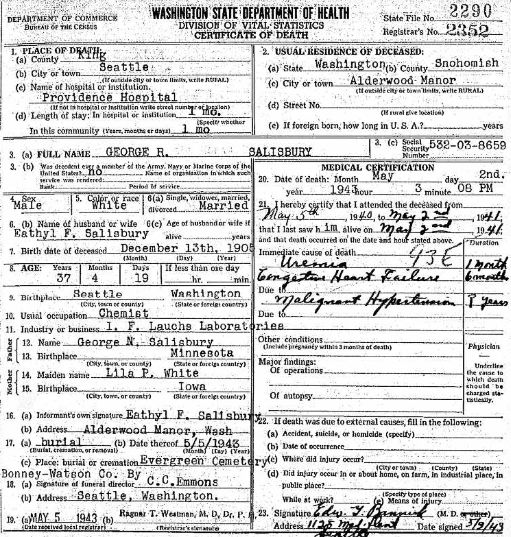 DEPARTMENT OF COMMERCE
BUREAU OF THE CENSUS
WASHINGTON STATE DEPARTMENT OF HEALTH
DIVISION OF VITAL STATISTICS
CERTIFICATE OF DEATH
State File No. 2290
Registrar's No. 2352
1. PLACE OF DEATH:
(a) County King
(b) City or town Seattle
(If outside city or town limits, write RURAL)
(c) Name of hospital or institution:
Providence Hospital
(If not in hospital or institution write street number or location)
(d) Length of stay: In hospital or institution 1 mo.
(Specify whether
In this community (Years, months or days) 1 mo
2. USUAL RESIDENCE OF DECEASED:
(a) State Washington (b) County Snohomish
(c) City or town Alderwood Manor
(If outside city or town limits, write RURAL)
(d) Street No.
(If rural give location)
(e) If foreign born, how long in U. S. A.? years
3. (a) FULL NAME GEORGE R. SALISBURY
3. (c) Social Security 532-03-8659
3. (b) Was decedent ever a member of the Army, Navy or Marine Corps of the
United States? no Name of organization in which such
service was rendered
Rank Period of service
4. Sex Male
5. Color or race White
6.(a) Single, widowed, married, divorced Married
6. (b) Name of husband or wife Eathyl F. Salisbury
6.(c) Age of husband or wife if alive
7. Birth date of deceased December 13th, 1905
(Month) (Day) (Year)
8. AGE: Years 37 Months 4 Days 19 If less than one day hr. min.
9. Birthplace Seattle Washington
(City, town or county) (State or foreign country)
10. Usual occupation Chemist
11. Industry or business I. F. Lauchs Laboratories
Father
12. Name George N. Salisbury
13. Birthplace Minnesota
(City, town, or county) (State or foreign country)
Mother
14. Maiden name Lila P. White
15. Birthplace Iowa
(City, town, or county) (State or foreign country)
16. (a) Informant's own signature Eathyl F. Salisbury
(b) Address Alderwood Manor, Wash
17. (a) burial (b) Date thereof 5/5/1943
(Burial, cremation, or removal) (Month) (Day) (Year)
(c) Place: burial or cremation Evergreen Cemetery
Bonney-Watson Co. By
18. (a) Signature of funeral director C.C.Emmons
(b) Address Seattle, Washington.
19. (a) MAY 5 1943 (b) Ragnar T. Westman, M. D., Dr. P. H.
(Date received local registrar) (Registrar's signature)
MEDICAL CERTIFICATION
20. Date of death: Month May day 2nd.
year 1943 hour 3 minute 08 PM
21. I hereby certify that I attended the deceased from
May 5th, 1940, to May 2nd 1941
that I last saw h im alive on May 2nd 1941
and that death occurred on the date and hour stated above.
Duration
Immediate cause of death
Uremia 1 Month
Congestive Heart Failure 6 months
Due to Malignant Hypertension 8 years
Due to
Other conditions
(Include pregnancy within 3 months of death)
Major findings:
Of operations
Of autopsy
Physician
Underline the cause to which death should be charged statistically.
22. If death was due to external causes, fill in the following:
(a) Accident, suicide, or homicide (specify)
(b) Date of occurrence
(c) Where did injury occur?
(City or town) (County) (State)
(d) Did injury occur in or about home, on farm, in industrial place, in
public place?
(Specify type of place)
While at work? (e) Means of injury
23. Signature (M. D. or other)
Address Date signed 5/3/43
Seattle